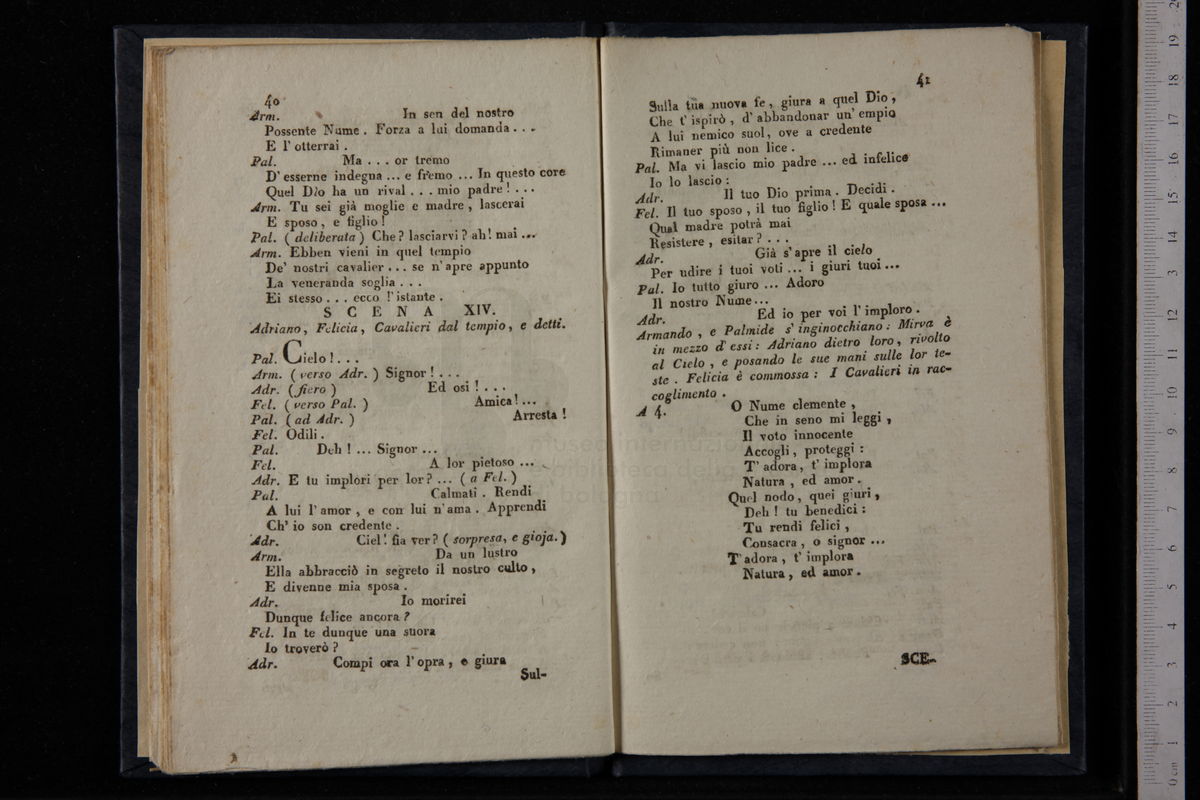 40
Arm. In sen del nostro
Possente Nume. Forza a lui domanda...
E l'otterrai.
Pal. Ma... or tremo
D'esserne indegna... e fremo... In questo core
Quel Dio ha un rival... mio padre!...
Arm. Tu sei già moglie e madre, lascerai
E sposo, e figlio!
Pal. (deliberata) Che? lasciarvi? ah! mai...
Arm. Ebben vieni in quel tempio
De' nostri cavalier... se n'apre appunto
La veneranda soglia...
Ei stesso... ecco l'istante.
SCENA XIV.
Adriano, Felicia, Cavalieri dal tempio, e detti.
Pal. Cielo!...
Arm. (verso Adr.) Signor!...
Adr. (fiero) Ed osi!...
Fel. (verso Pal.) Amica!...
Pal. (ad Adr.) Arresta!
Fel. Odili.
Pal. Deh!... Signor...
Fel. A lor pietoso...
Adr. E tu implori per lor?... (a Fel.)
Pal. Calmati. Rendi
A lui l'amor, e con lui n'ama. Apprendi
Ch'io son credente.
Adr. Ciel! fia ver? (sorpresa, e gioja.)
Arm. Da un lustro
Ella abbracciò in segreto il nostro culto,
E divenne mia sposa.
Adr. Io morirei
Dunque felice ancora?
Fel. In te dunque una suora
Io troverò?
Adr. Compi ora l'opra, e giura
Sul-
41
Sulla tua nuova fe, giura a quel Dio,
Che t'ispirò, d'abbandonar un'empio
A lui nemico suol, ove a credente
Rimaner più non lice.
Pal. Ma vi lascio mio padre... ed infelice
Io lo lascio:
Adr. Il tuo Dio prima. Decidi.
Fel. Il tuo sposo, il tuo figlio! E quale sposa...
Qual madre potrà mai
Resistere, esitar?...
Adr. Già s'apre il cielo
Per udire i tuoi voti... i giuri tuoi...
Pal. Io tutto giuro... Adoro
Il nostro Nume...
Adr. Ed io per voi l'imploro.
Armando, e Palmide s'inginocchiano: Mirva è
in mezzo d'essi: Adriano dietro loro, rivolto
al Cielo, e posando le sue mani sulle lor te-
ste. Felicia è commossa: I Cavalieri in rac-
coglimento.
A 4. O Nume clemente,
Che in seno mi leggi,
Il voto innocente
Accogli, proteggi:
T'adora, t'implora
Natura, ed amor.
Quel nodo, quei giuri,
Deh! tu benedici:
Tu rendi felici,
Consacra, o signor...
T'adora, t'implora
Natura, ed amor.
SCE-